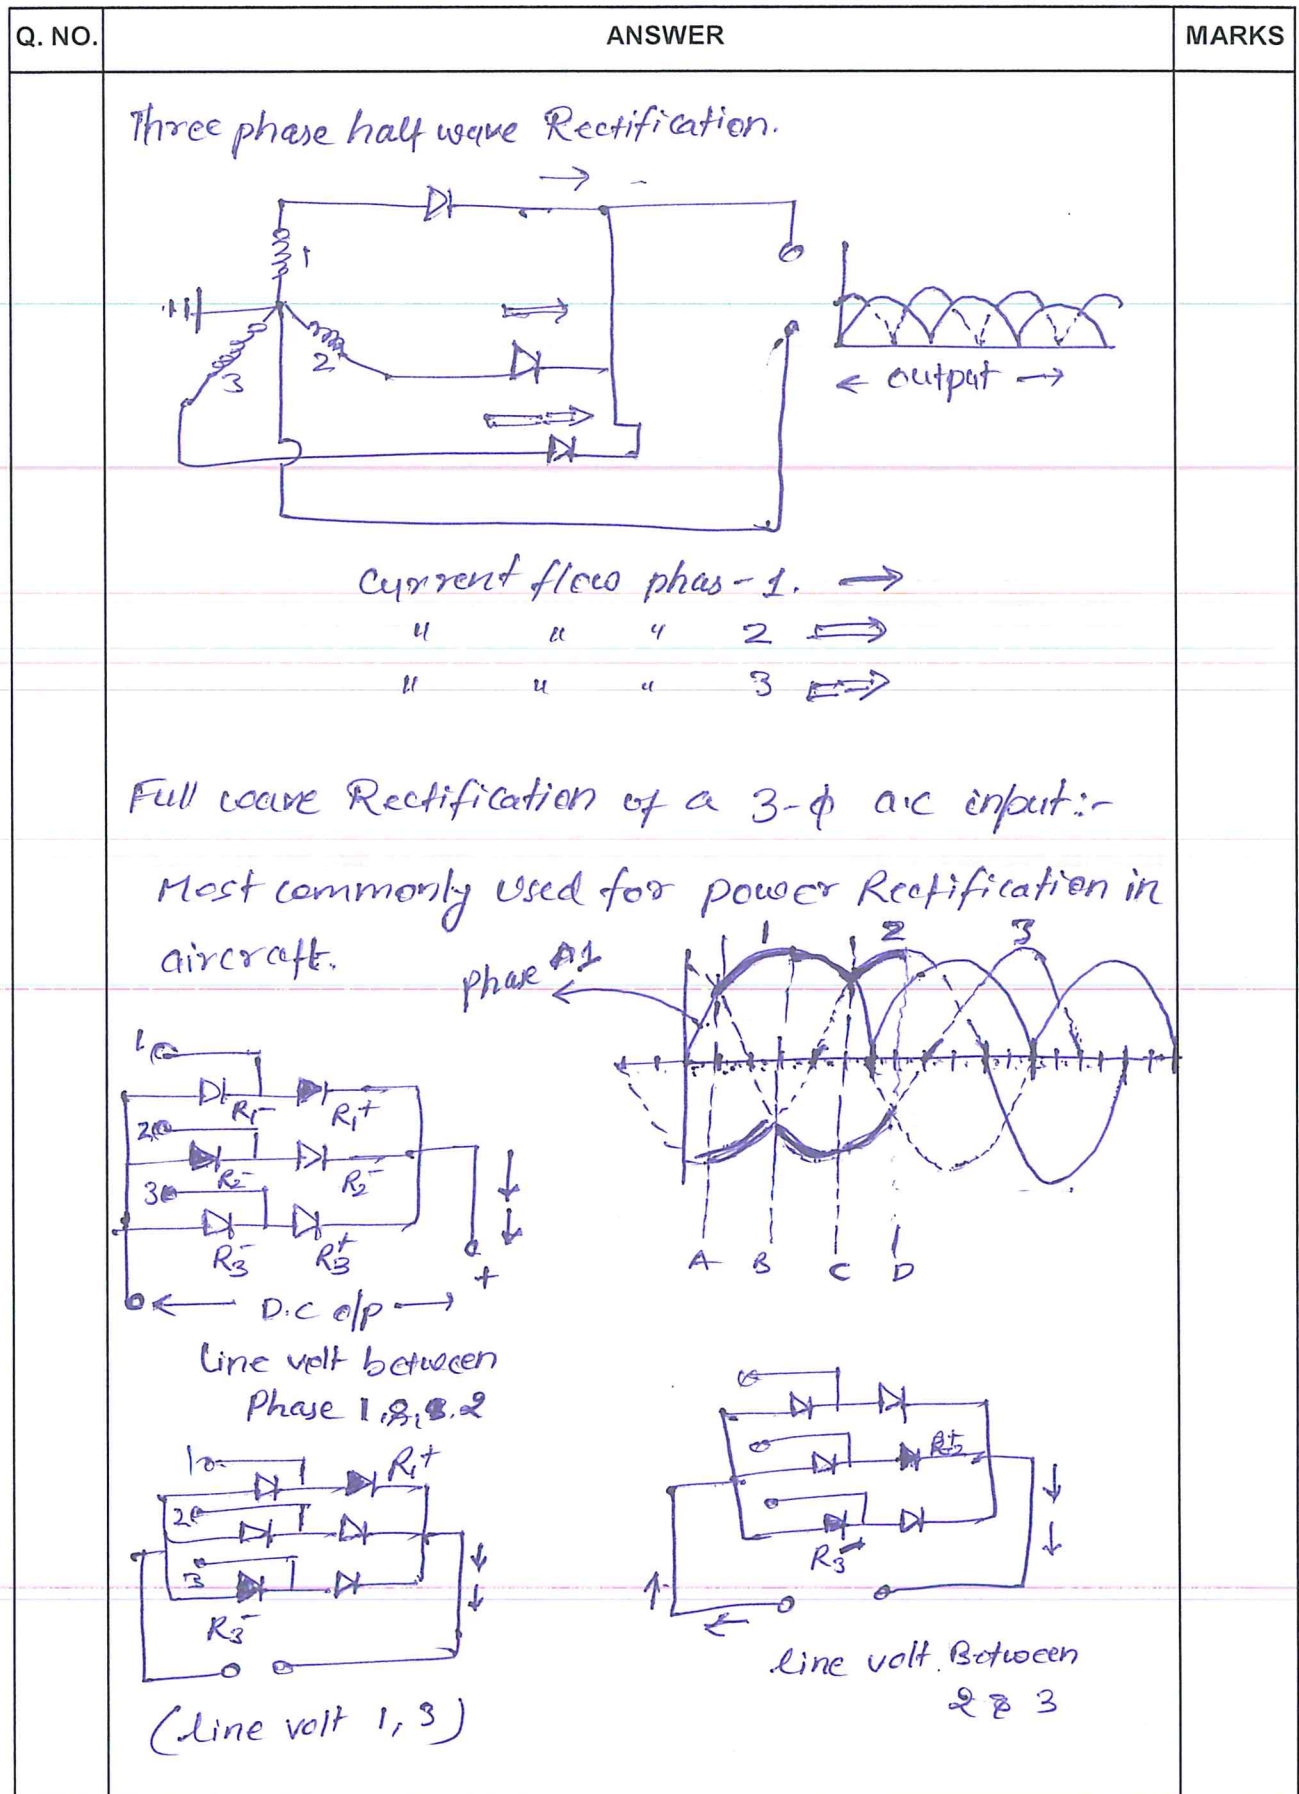 Q. NO. ANSWER MARKS
Three phase half wave Rectification.
1
2
3
← output →
Current flow phas-1. →
" " " 2 ⇒
" " " 3 ⇒
Full wave Rectification of a 3-ϕ a.c input:-
Most commonly used for power Rectification in
aircraft.
Phase 1
1 2 3
A B C D
1
R1- R1+
2
R2- R2-
3
R3- R3+
+
← D.C o/p →
Line volt between
Phase 1, 2
1 R1+
2
3
R3-
(Line volt 1, 3)
R2+
R3-
line volt. Between
2 & 3